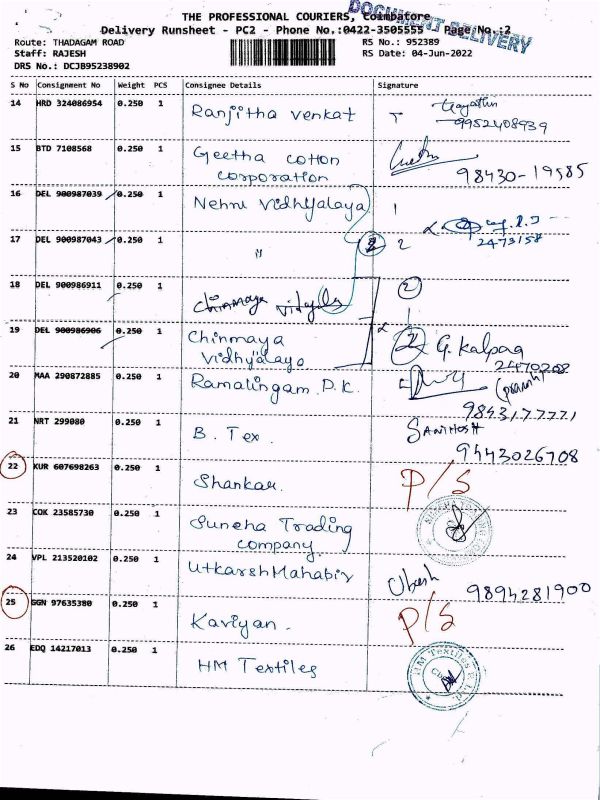 THE PROFESSIONAL COURIERS, Coimbatore
DOCUMENT DELIVERY
Delivery Runsheet - PC2 - Phone No.:0422-3505555 Page No.:2
Route: THADAGAM ROAD RS No.: 952389
Staff: RAJESH RS Date: 04-Jun-2022
DRS No.: DCJB95238902
S No Consignment No Weight PCS Consignee Details Signature
14 HRD 324086954 0.250 1 Ranjitha venkat
9952408939
15 BTD 7108568 0.250 1 Geetha cotton
corporation 98430-19585
16 DEL 900987039 0.250 1 Nehru Vidhyalaya 1
2473158
17 DEL 900987043 0.250 1 " 2 2
18 DEL 900986911 0.250 1 Chinmaya vidyala 2
19 DEL 900986906 0.250 1 Chinmaya
vidhyalaya 2 G. Kalpaa
2470208
20 MAA 290872885 0.250 1 Ramalingam D.K.
9843177771
21 NRT 299080 0.250 1 B. Tex. SANTHOSH
9443026708
22 KUR 607698263 0.250 1 Shankar. P/S
23 COK 23585730 0.250 1 Suneha Trading
company
24 VPL 213520102 0.250 1 Utkarsh Mahabir Ubesh
9894281900
25 GGN 97635380 0.250 1 Kaviyan. P/S
26 EDQ 14217013 0.250 1 HM Textiles